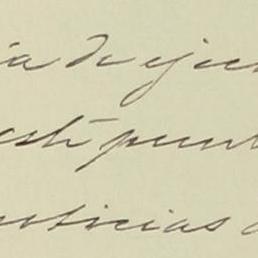 ía de ejec
está punt
noticias d